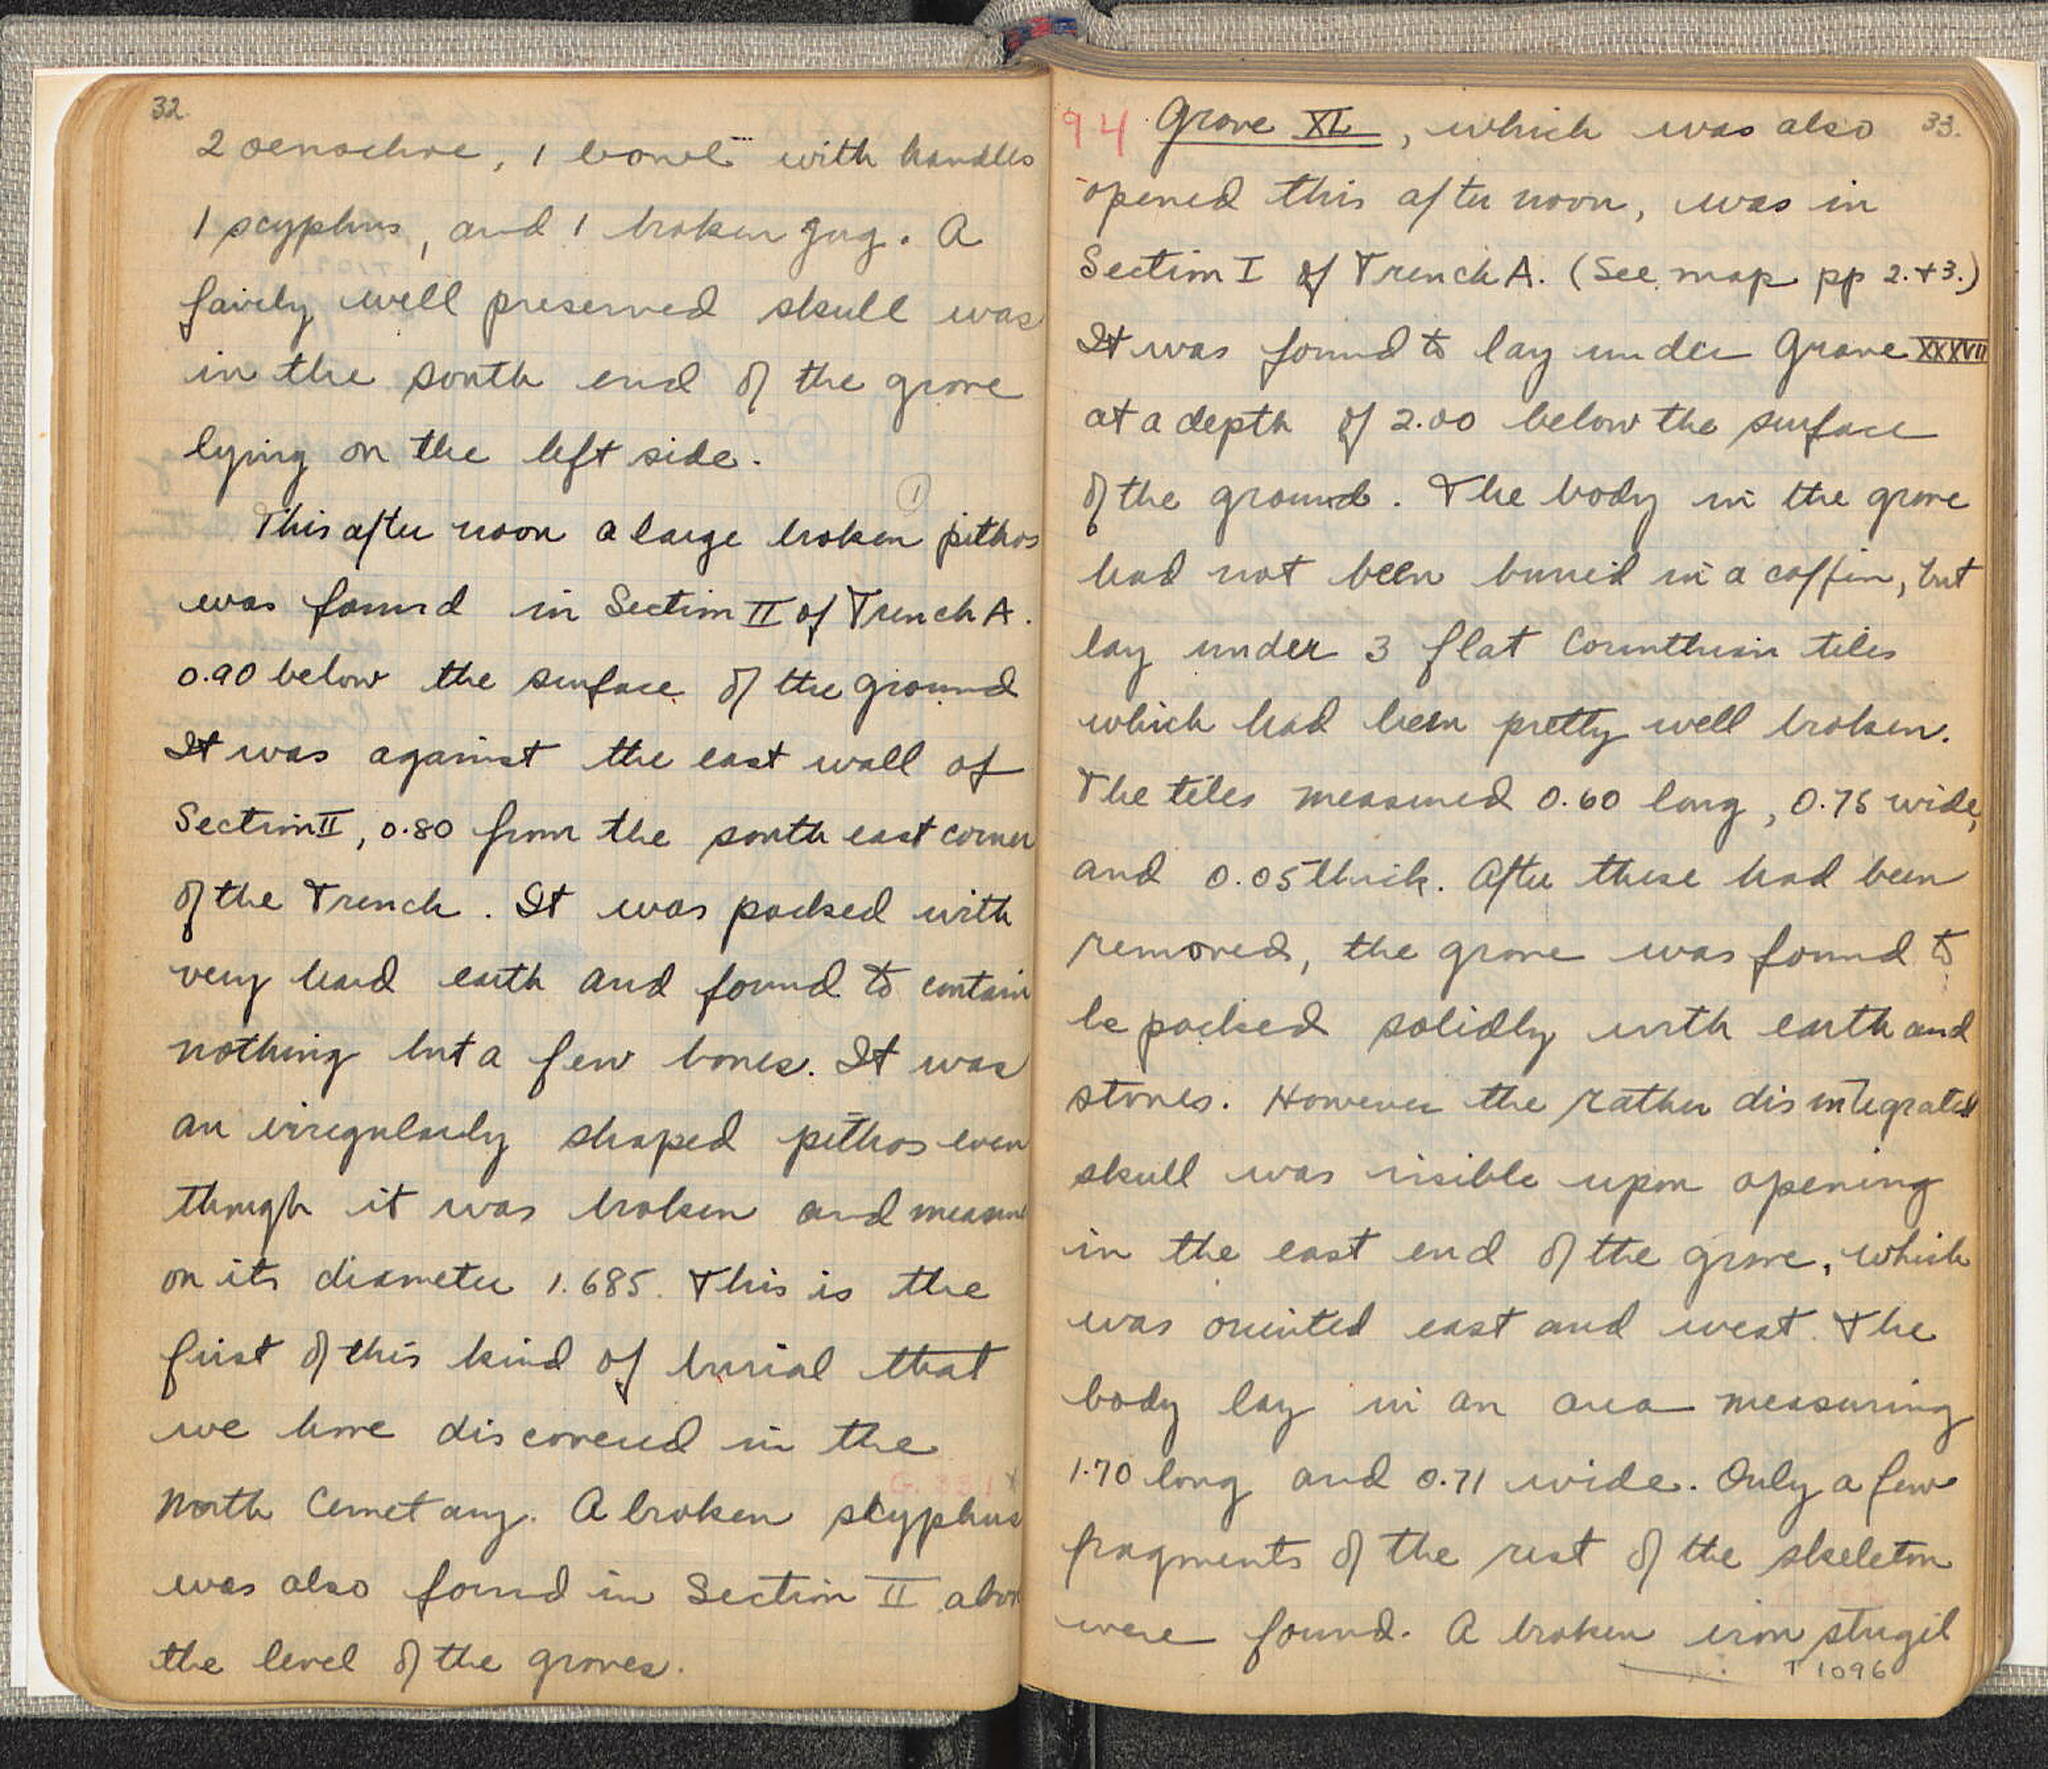 32.
2 oenochoe, 1 bowl with handles
1 scyphus, and 1 broken jug. A
fairly well preserved skull was
in the south end of the grave
lying on the left side.
1
This after noon a large broken pithos
was found in Section II of Trench A.
0.90 below the surface of the ground
It was against the east wall of
Section II, 0.80 from the south east corner
of the Trench. It was packed with
very hard earth and found to contain
nothing but a few bones. It was
an irregularly shaped pithos even
though it was broken and measured
on its diameter 1.685. This is the
first of this kind of burial that
we have discovered in the
North Cemetary. A broken scyphus
was also found in Section II above
the level of the graves.
33.
94 Grave XL, which was also
opened this after noon, was in
Section I of Trench A. (See map pp 2.+3.)
It was found to lay under Grave XXXVII
at a depth of 2.00 below the surface
of the ground. The body in the grave
had not been buried in a coffin, but
lay under 3 flat Corinthian tiles
which had been pretty well broken.
The tiles measured 0.60 long, 0.75 wide,
and 0.05 thick. After these had been
removed, the grave was found to
be packed solidly with earth and
stones. However the rather disintegrated
skull was visible upon opening
in the east end of the grave, which
was oriented east and west. The
body lay in an area measuring
1.70 long and 0.71 wide. Only a few
fragments of the rest of the skeleton
were found. A broken iron strigil
T 1096